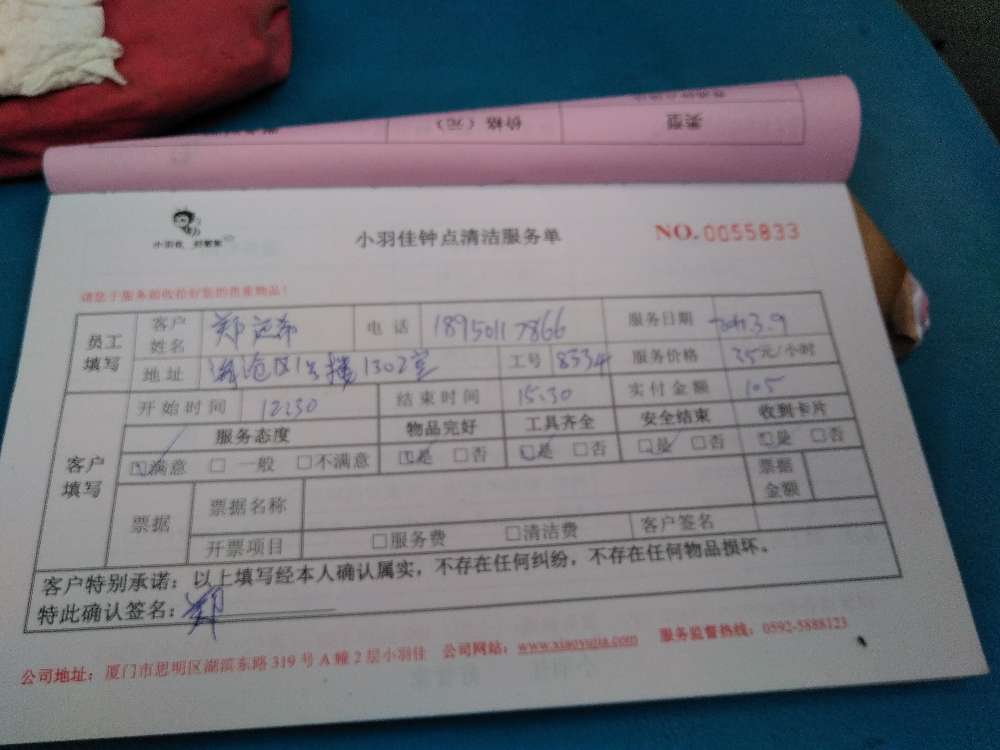 类型 价格（元）
小羽佳 好管家
小羽佳钟点清洁服务单
NO. 0055833
请您于服务前收拾好您的贵重物品！
员工填写 客户姓名 郑 电话 18950117866 服务日期 3.9
地址 海沧区1号楼1302室 工号 8334 服务价格 35元/小时
客户填写 开始时间 12:30 结束时间 15:30 实付金额 105
服务态度 物品完好 工具齐全 安全结束 收到卡片
☑满意 □一般 □不满意 ☑是 □否 ☑是 □否 ☑是 □否 ☑是 □否
票据 票据名称 票据金额
开票项目 □服务费 □清洁费 客户签名
客户特别承诺：以上填写经本人确认属实，不存在任何纠纷，不存在任何物品损坏。
特此确认签名：郑
公司地址：厦门市思明区湖滨东路319号A幢2层小羽佳 公司网站：www.xiaoyujia.com 服务监督热线：0592-5888123